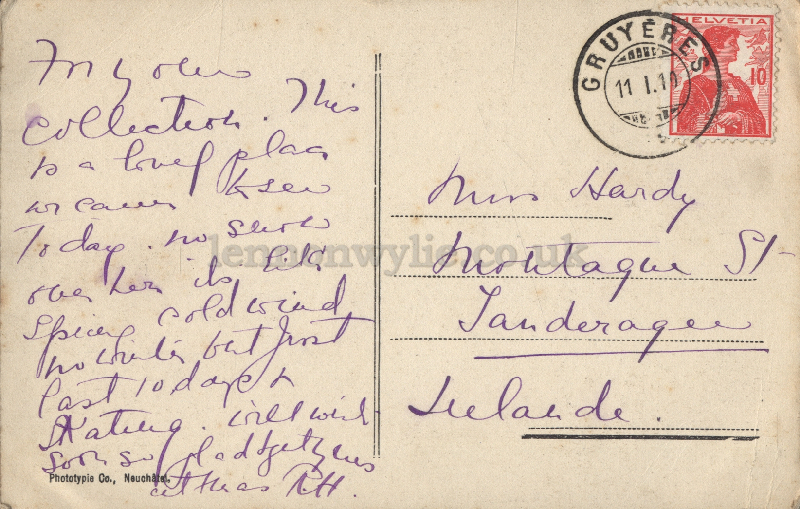 For your
collection. This
is a lovely place
we came to see
Today. no snow
over here its like
spring cold wind
no winter but frost
last 10 days &
skating. will write
soon so glad to get yours
at Xmas RH
Phototypie Co., Neuchâtel.
HELVETIA
10
GRUYÈRES
11 I.10
Miss Hardy
Montague St
Tanderagee
Irelande.
lennonwylie.co.uk